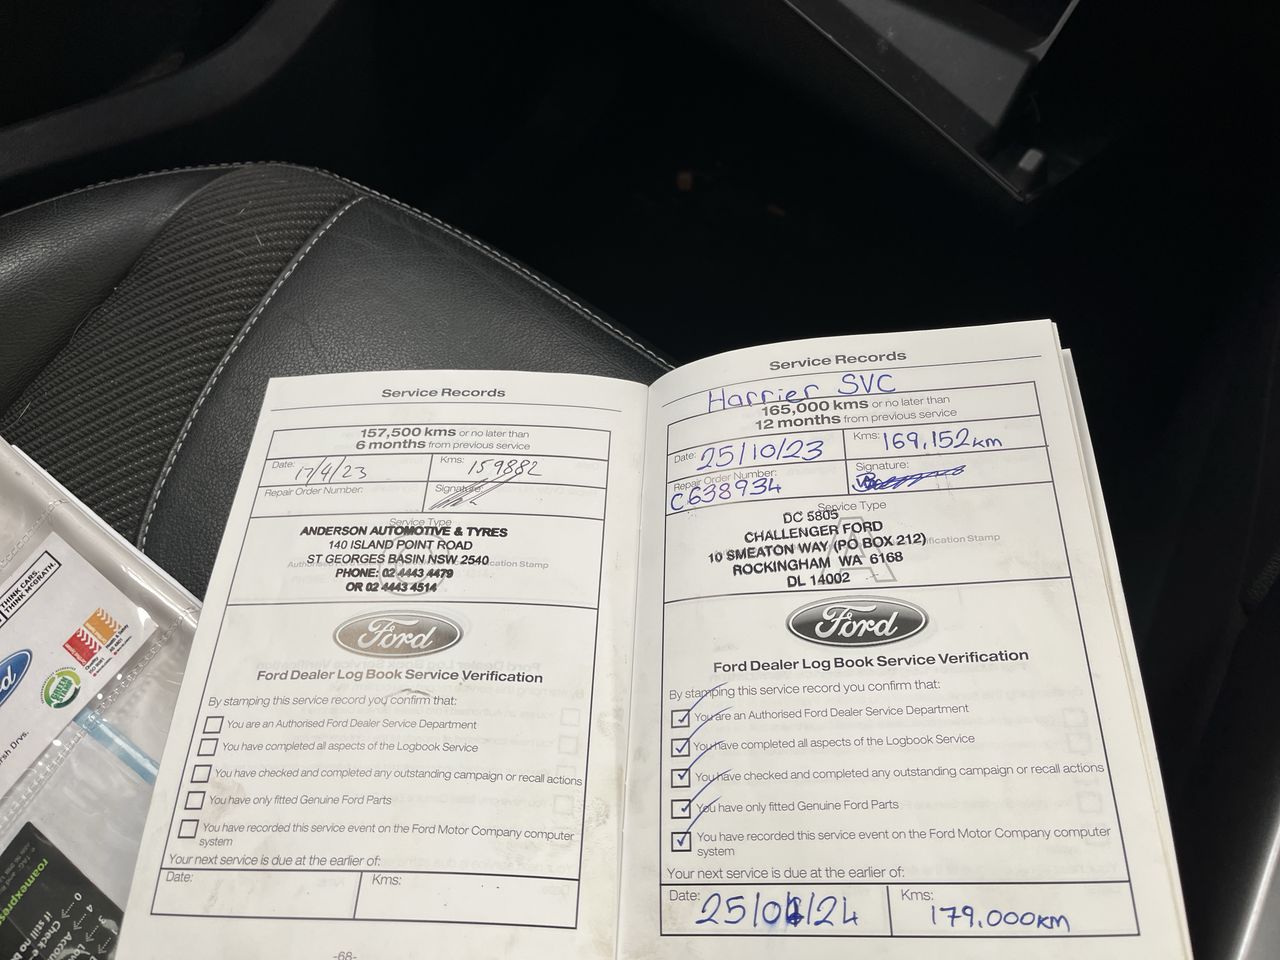 Service Records
157,500 kms or no later than
6 months from previous service
Date: 17/4/23
Kms: 159882
Repair Order Number:
Signature:
Service Type
ANDERSON AUTOMOTIVE & TYRES
140 ISLAND POINT ROAD
ST GEORGES BASIN NSW 2540
PHONE: 02 4443 4479
OR 02 4443 4514
Ford
Ford Dealer Log Book Service Verification
By stamping this service record you confirm that:
You are an Authorised Ford Dealer Service Department
You have completed all aspects of the Logbook Service
You have checked and completed any outstanding campaign or recall actions
You have only fitted Genuine Ford Parts
You have recorded this service event on the Ford Motor Company computer
system
Your next service is due at the earlier of:
Date:
Kms:
-68-
Service Records
Harrier SVC
165,000 kms or no later than
12 months from previous service
Date: 25/10/23
Kms: 169,152km
Repair Order Number:
C638934
Signature:
Service Type
DC 5805
CHALLENGER FORD
10 SMEATON WAY (PO BOX 212)
ROCKINGHAM WA 6168
DL 14002
Ford
Ford Dealer Log Book Service Verification
By stamping this service record you confirm that:
You are an Authorised Ford Dealer Service Department
You have completed all aspects of the Logbook Service
You have checked and completed any outstanding campaign or recall actions
You have only fitted Genuine Ford Parts
You have recorded this service event on the Ford Motor Company computer
system
Your next service is due at the earlier of:
Date: 25/04/24
Kms: 179.000KM
THINK CARS.
THINK MCGRATH.
roamexpress